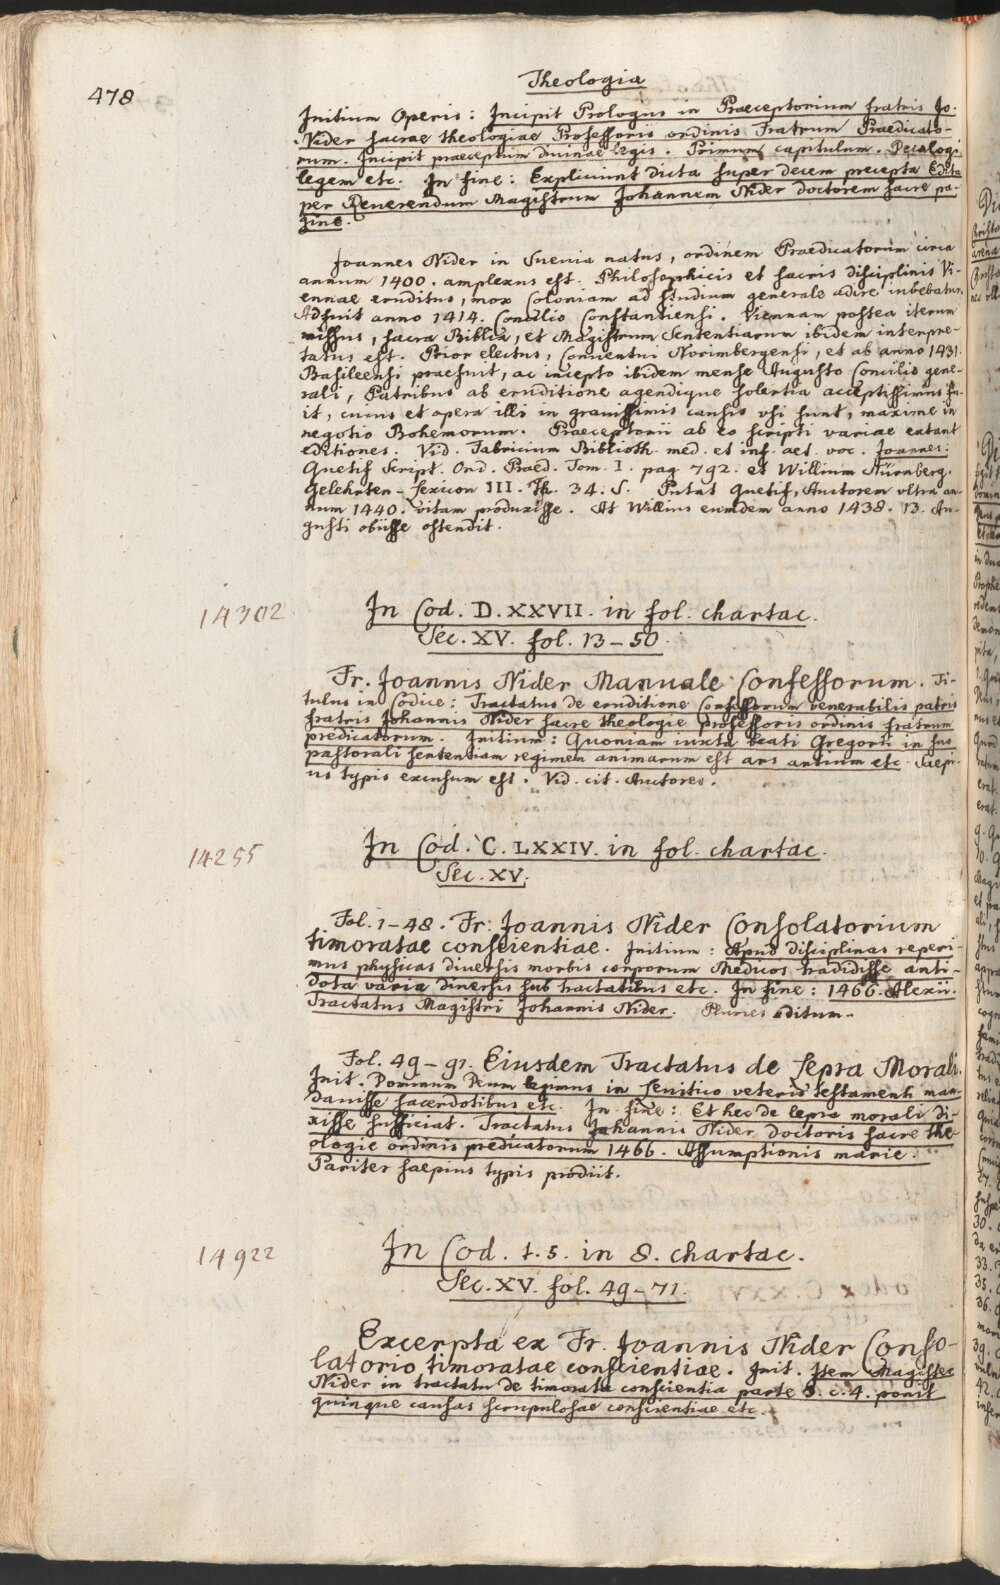 478
Theologia
Initium Operis: Incipit Prologus in Praeceptorium fratris Jo.
Nider sacrae theologiae Professoris ordinis Fratrum Praedicato-
rum. Incipit praeceptum divinae legis. Primum capitulum. Decalogi
legem etc. In fine: Expliciunt dicta super decem precepta Edita
per Reuerendum Magistrum Johannem Nider doctorem sacre pa-
gine.
Joannes Nider in Suenia natus, ordinem Praedicatorum circa
annum 1400. amplexus est. Philosophicis et sacris disciplinis Vi-
ennae eruditus, mox Coloniam ad studium generale adire iubebatur.
Adfuit anno 1414. Concilio Constantiensi. Viennam postea iterum
missus, sacra Biblia, et Magistrum Sententiarum ibidem interpre-
tatus est. Prior electus, Conuentui Norimbergensi, et ab anno 1431.
Basileensi praefuit, ac incepto ibidem mense Augusto Concilio gene-
rali, Patribus ab eruditione agendique solertia acceptissimus fu-
it, cuius et opera illi in grauissimis causis vsi sunt, maxime in
negotio Bohemorum. Praeceptorii ab eo scripti variae extant
editiones. Vid. Fabricium Biblioth. med. et inf. aet. voc. Joannes:
Quetif Script. Ord. Praed. Tom. I. pag. 792. et Willium Nürnberg.
Gelehrten-Lexicon III. Th. 34. S. Putat Quetif, Auctorem vltra an-
num 1440. vitam produxisse. At Willius eumdem anno 1438. 13. Au-
gusti obiisse ostendit.
14302
In Cod. D. XXVII. in fol. chartac.
Sec. XV. fol. 13-50.
Fr. Joannis Nider Manuale Confessorum. Ti-
tulus in Codice: Tractatus de eruditione Confessorum venerabilis patris
fratris Johannis Nider sacre theologie professoris ordinis fratrum
predicatorum. Initium: Quoniam iuxta beati Gregorii in suo
pastorali sententiam regimen animarum est ars artium etc. Saepi-
us typis excusum est. Vid. cit. Auctores.
14255
In Cod. C. LXXIV. in fol. chartac.
Sec. XV.
Fol. 1-48. Fr. Joannis Nider Consolatorium
timoratae conscientiae. Initium: Apud disciplinas reperi-
mus physicas diuersis morbis corporum Medicos tradidisse anti-
dota varia diuersis sub tractatibus etc. In fine: 1466. Alexii.
Tractatus Magistri Johannis Nider. Pluries editum.
Fol. 49-91. Eiusdem Tractatus de Lepra Morali.
Init. Dominum Deum legimus in Leuitico veteris testamenti man-
dauisse sacerdotibus etc. In fine: Et hec de lepra morali di-
xisse sufficiat. Tractatus Johannis Nider doctoris sacre the-
ologie ordinis predicatorum 1466. Assumptionis marie.
Pariter saepius typis prodiit.
14922
In Cod. t. 5. in 8. chartac.
Sec. XV. fol. 49-71.
Excerpta ex Fr. Joannis Nider Conso-
latorio timoratae conscientiae. Init. Item Magister
Nider in tractatu de timorata conscientia parte 3. c. 4. ponit
quinque causas scrupulosae conscientiae etc.